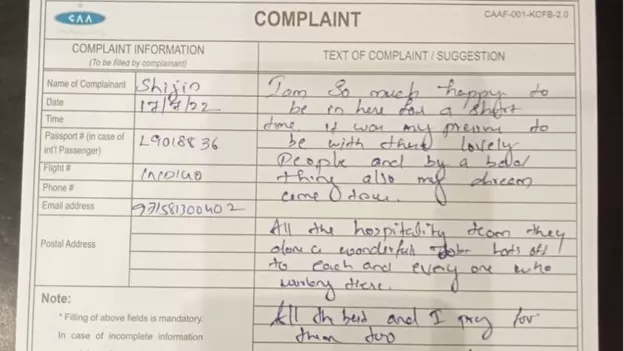 CAA
COMPLAINT
CAAF-001-KCFB-2.0
COMPLAINT INFORMATION
(To be filled by complainant)
Name of Complainant Shijin
Date 17/7/22
Time
Passport # (in case of
int'l Passenger) L9018836
Flight # INDIGO
Phone #
Email address 971581300402
Postal Address
Note:
* Filling of above fields is mandatory.
In case of incomplete information
TEXT OF COMPLAINT / SUGGESTION
I am So much happy to
be in here for a short
time it was my to
be with these lovely
People and by a bad
thing also my dream
come true.
All the hospitality team they
done a wonderful Job hats off
to each and every one who
working there.
All th best and I pray for
them too